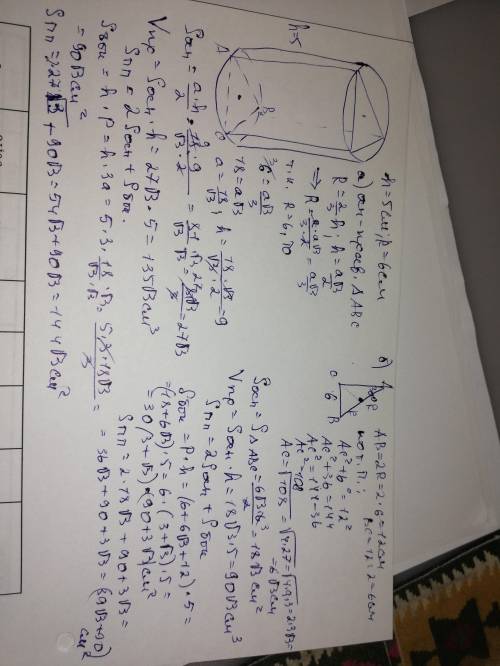 h=5
A
R
C
h=5 см, R=6 см
а) осн - прав. △ABC
R = 2/3 h; h = a√3/2
⇒ R = 2·a√3/3·2 = a√3/3
т.к. R=6, то
6 = a√3/3
18 = a√3
a = 18/√3; h = 18·√3/√3·2 = 9
Sосн = a·h/2 = 18·9/√3·2 = 81/√3·√3 = 27√3
Vпр = Sосн·h = 27√3·5 = 135√3 см³
Sпп = 2Sосн + Sбок.
Sбок = h·P = h·3a = 5·3·18/√3·√3 = 5·3·18√3/3 =
= 90√3 см²
Sпп = 2·27√3 + 90√3 = 54√3 + 90√3 = 144√3 см²
б)
A
6
B
AB=2R=2·6=12см
BC=12:2=6см
AC²+6²=12²
AC²+36=144
AC²=144-36
AC²=108
AC=√108=√4·27=√4·9·3=2·3√3=
=6√3 см
Sосн=S△ABC=6√3·6/2=18√3 см²
Vпр=Sосн·h=18√3·5=90√3 см³
Sпп=2Sосн+Sбок
Sбок=P·h=(6+6√3+12)·5=
=(18+6√3)·5=6·(3+√3)·5=
=30(3+√3)=(90+3√3) см²
Sпп=2·18√3+90+3√3=
=36√3+90+3√3=(69√3+90)
см²